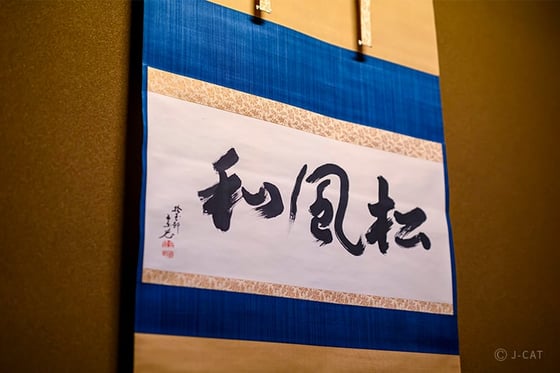 松風和
© J-CAT